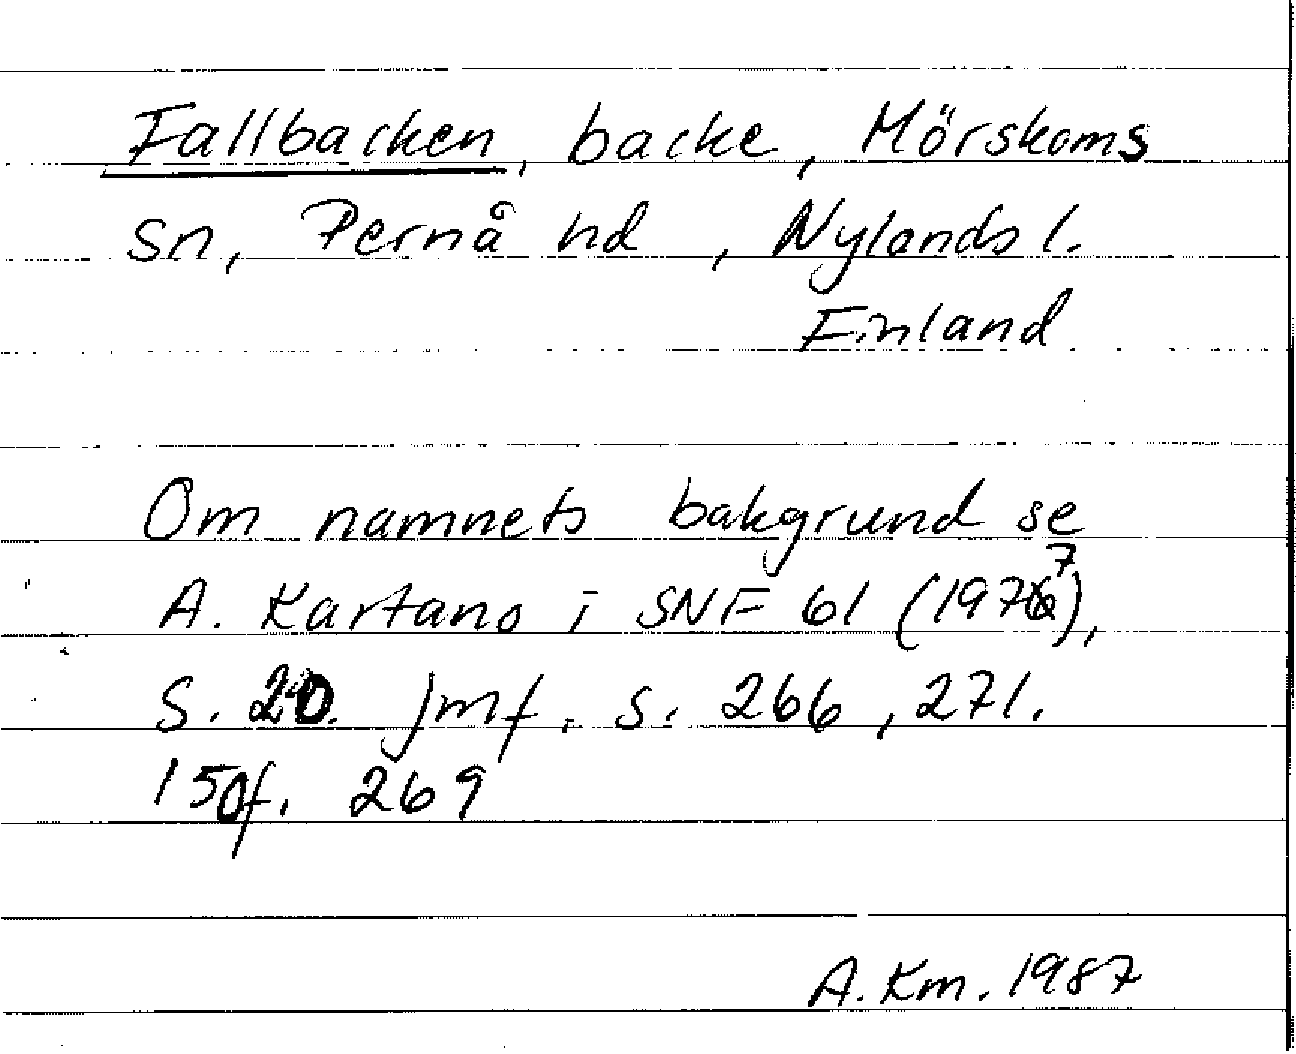 Fallbacken, backe, Mörskoms
sn, Pernå hd, Nylands l.
Finland
Om namnets bakgrund se
A. Kartano i SNF 61 (1977),
s. 20 jmf. s. 266, 271.
150f. 269
A. Km. 1987